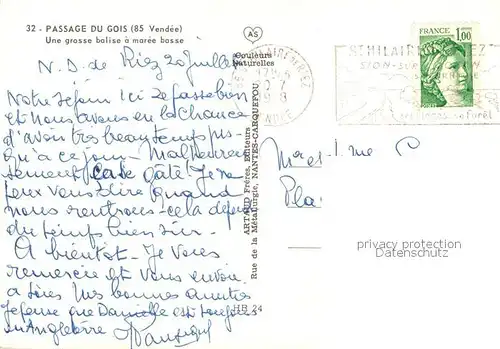 32 - PASSAGE DU GOIS (85 Vendée)
Une grosse balise à marée basse
AS
Couleurs
Naturelles
FRANCE 1,00
ST HILAIRE
SION-SUR-
N.D. de Riez 20 juillet
Notre séjour ici se passe bien
et nous avons eu la chance
d'avoir très beau temps jus-
qu'à ce jour - Malheureu-
sement cela se gâte! Je ne
peux vous dire quand
nous rentrons - cela dépend
du temps bien sûr -
A bientôt - Je vous
remercie et vous envoie
à tous mes bonnes amitiés
Je pense que Danielle est toujours
en Angleterre
ARTAUD Frères, Editeurs
Rue de la Métallurgie, NANTES-CARQUEFOU
HB 24
Mr et Mme P
Pla
privacy protection
Datenschutz